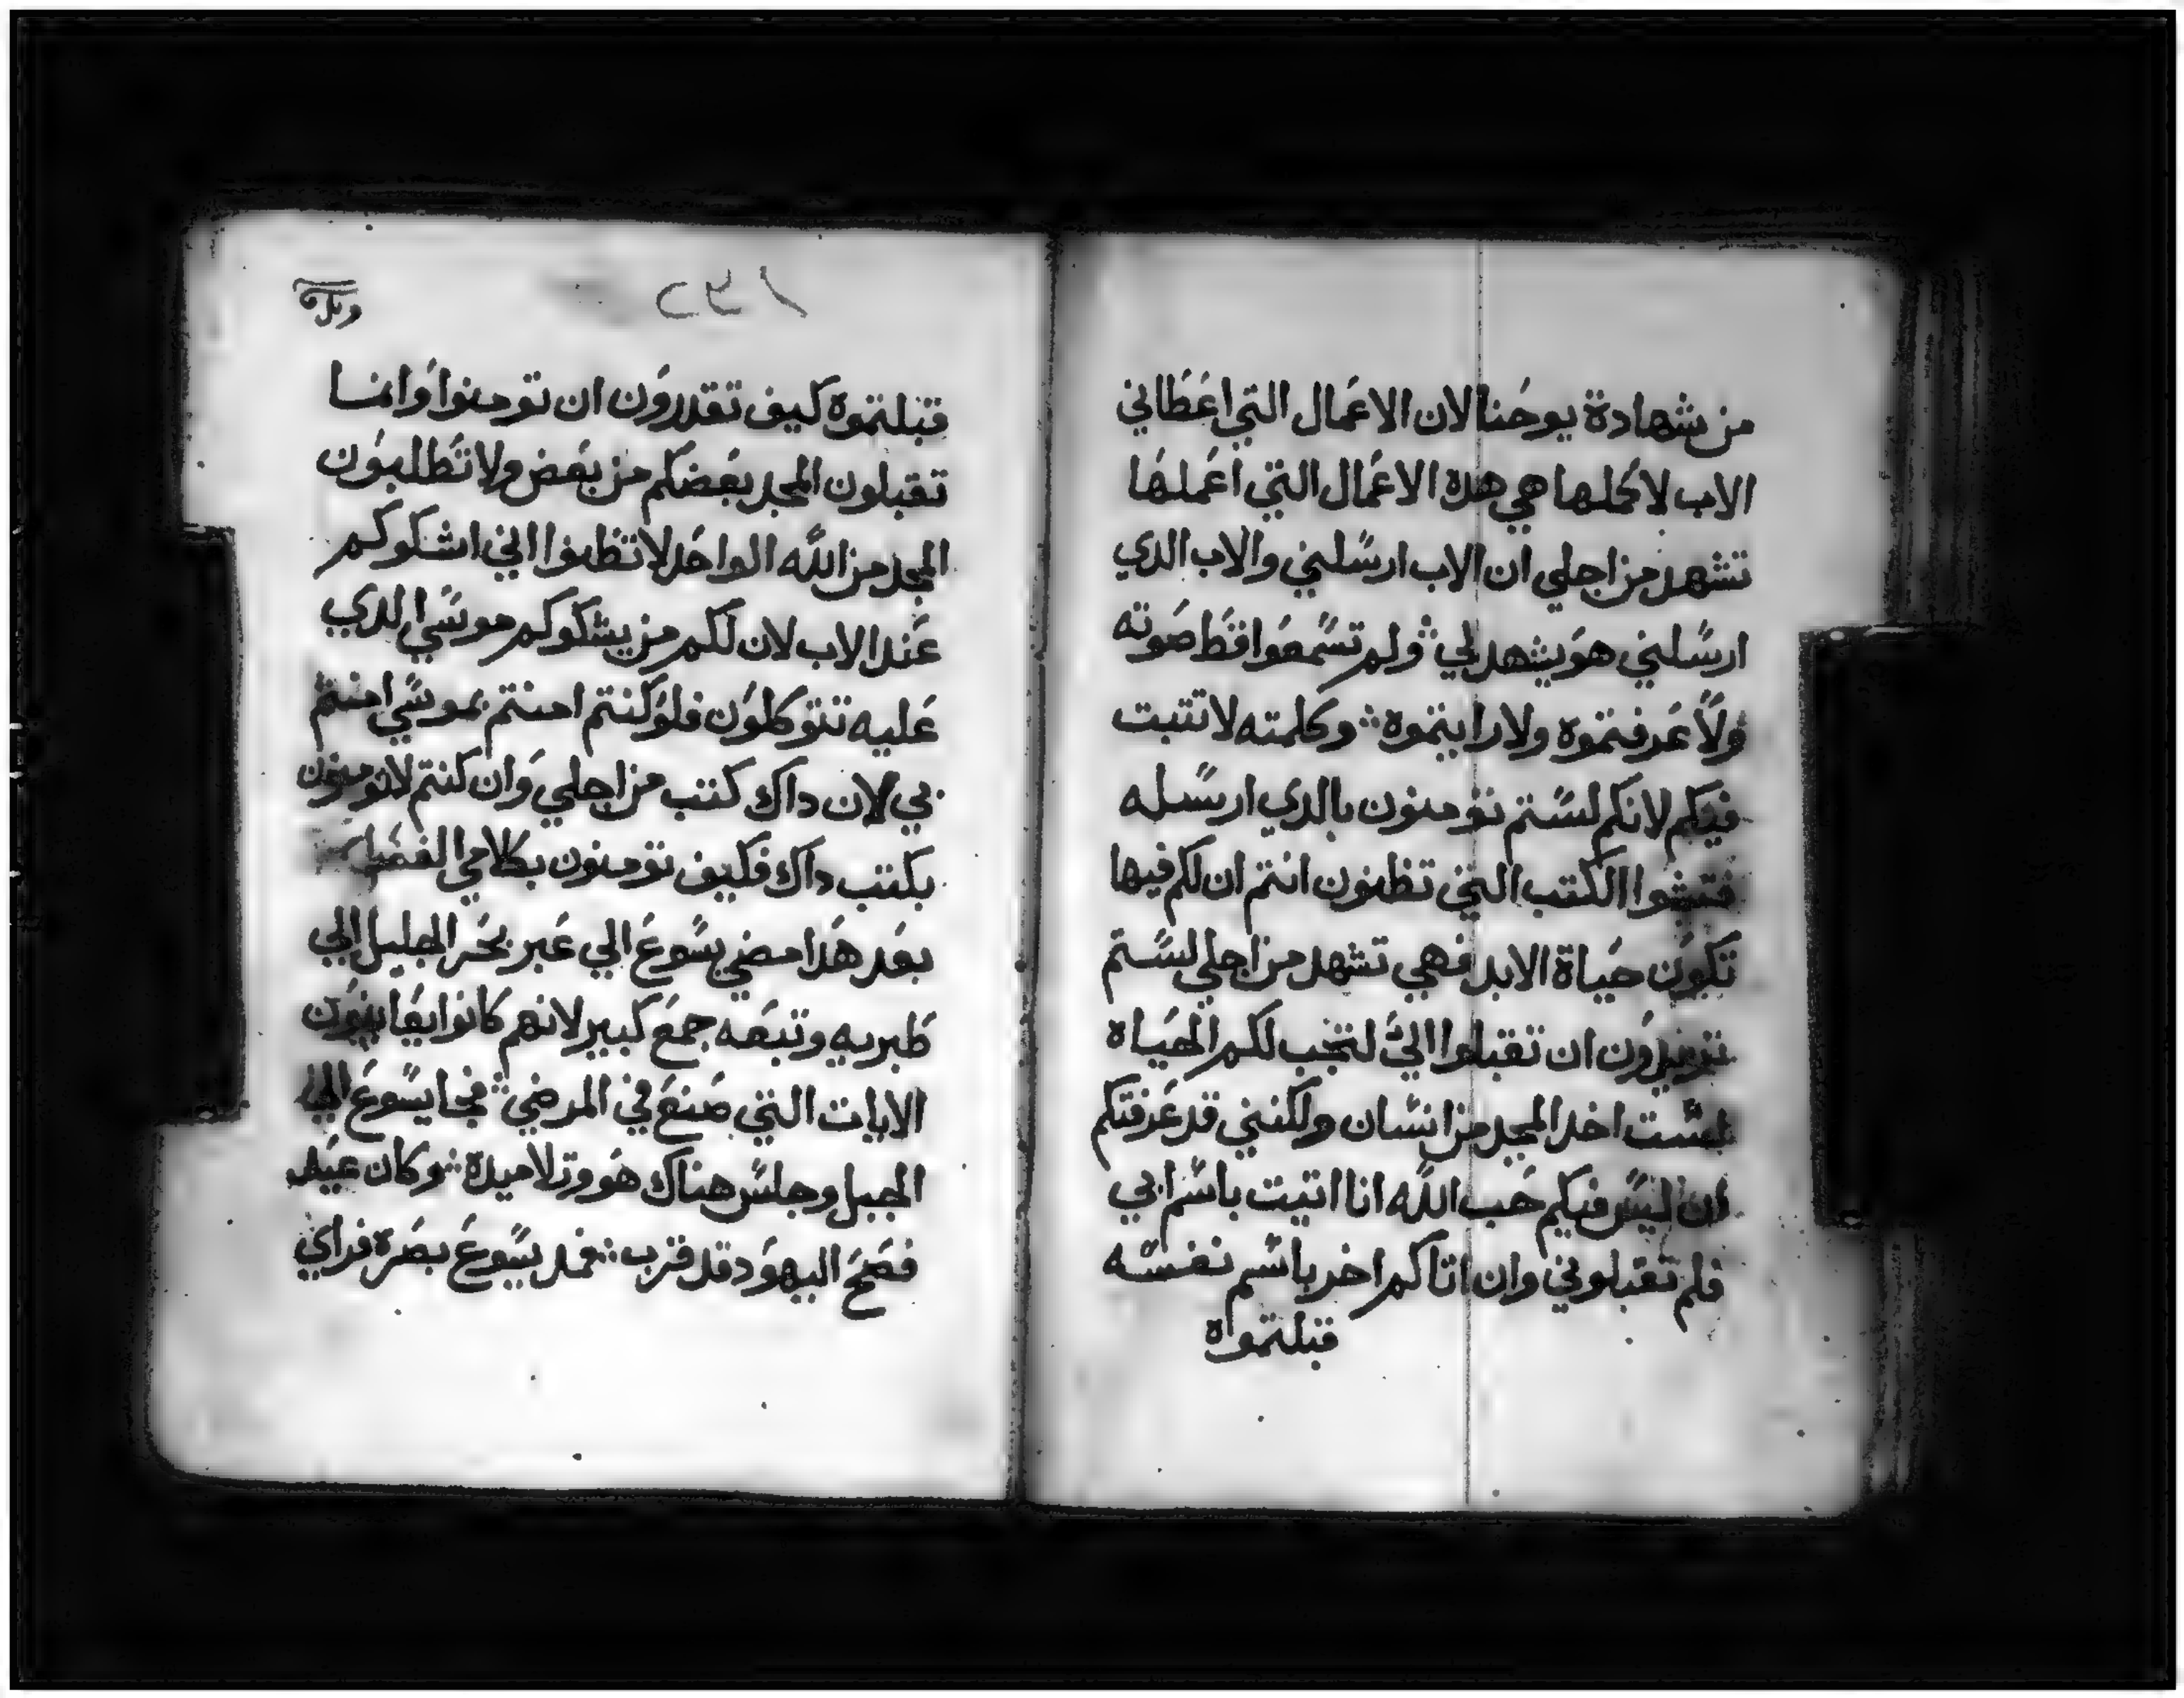 من شهادة يوحنا لان الاعمال التي اعطاني
الاب لاكملها هي هده الاعمال التي اعملها
تشهد من اجلي ان الاب ارسلني والاب الدي
ارسلني هو يشهد لي ولم تسمعوا قط صوته
ولا عرفتموه ولا رايتموه وكلمته لا تتبت
فيكم لانكم لستم تومنون بالدي ارسله
فتشوا الكتب التي تظنون انتم ان لكم فيها
تكون حياة الابد فهي تشهد من اجلي لستم
تريدون ان تقبلوا الي لتجب لكم الحياه
لست اخد المجد من انسان ولكنني قد عرفتكم
ان ليس فيكم حب الله انا اتيت باسم ابي
فلم تقبلوني وان اتاكم اخر باسم نفسه
قبلتموه
قبلتموه كيف تقدرون ان تومنوا وانما
تقبلون المجد بعضكم من بعض ولا تطلبون
المجد من الله الواحد لا تظنوا اني اشكوكم
عند الاب لان لكم من يشكوكم موسي الدي
عليه تتوكلون فلو كنتم امنتم بموسي امنتم
بي لان داك كتب من اجلي وان كنتم لا تومنون
بكتب داك فكيف تومنون بكلامي
بعد هدا مضي يسوع الي عبر بحر الجليل الي
طبريه وتبعه جمع كبير لانهم كانوا يعاينون
الايات التي صنع في المرضي فجا يسوع الي
الجبل وجلس هناك هو وتلاميده وكان عيد
فصح اليهود قد قرب فمد يسوع بصره فراي